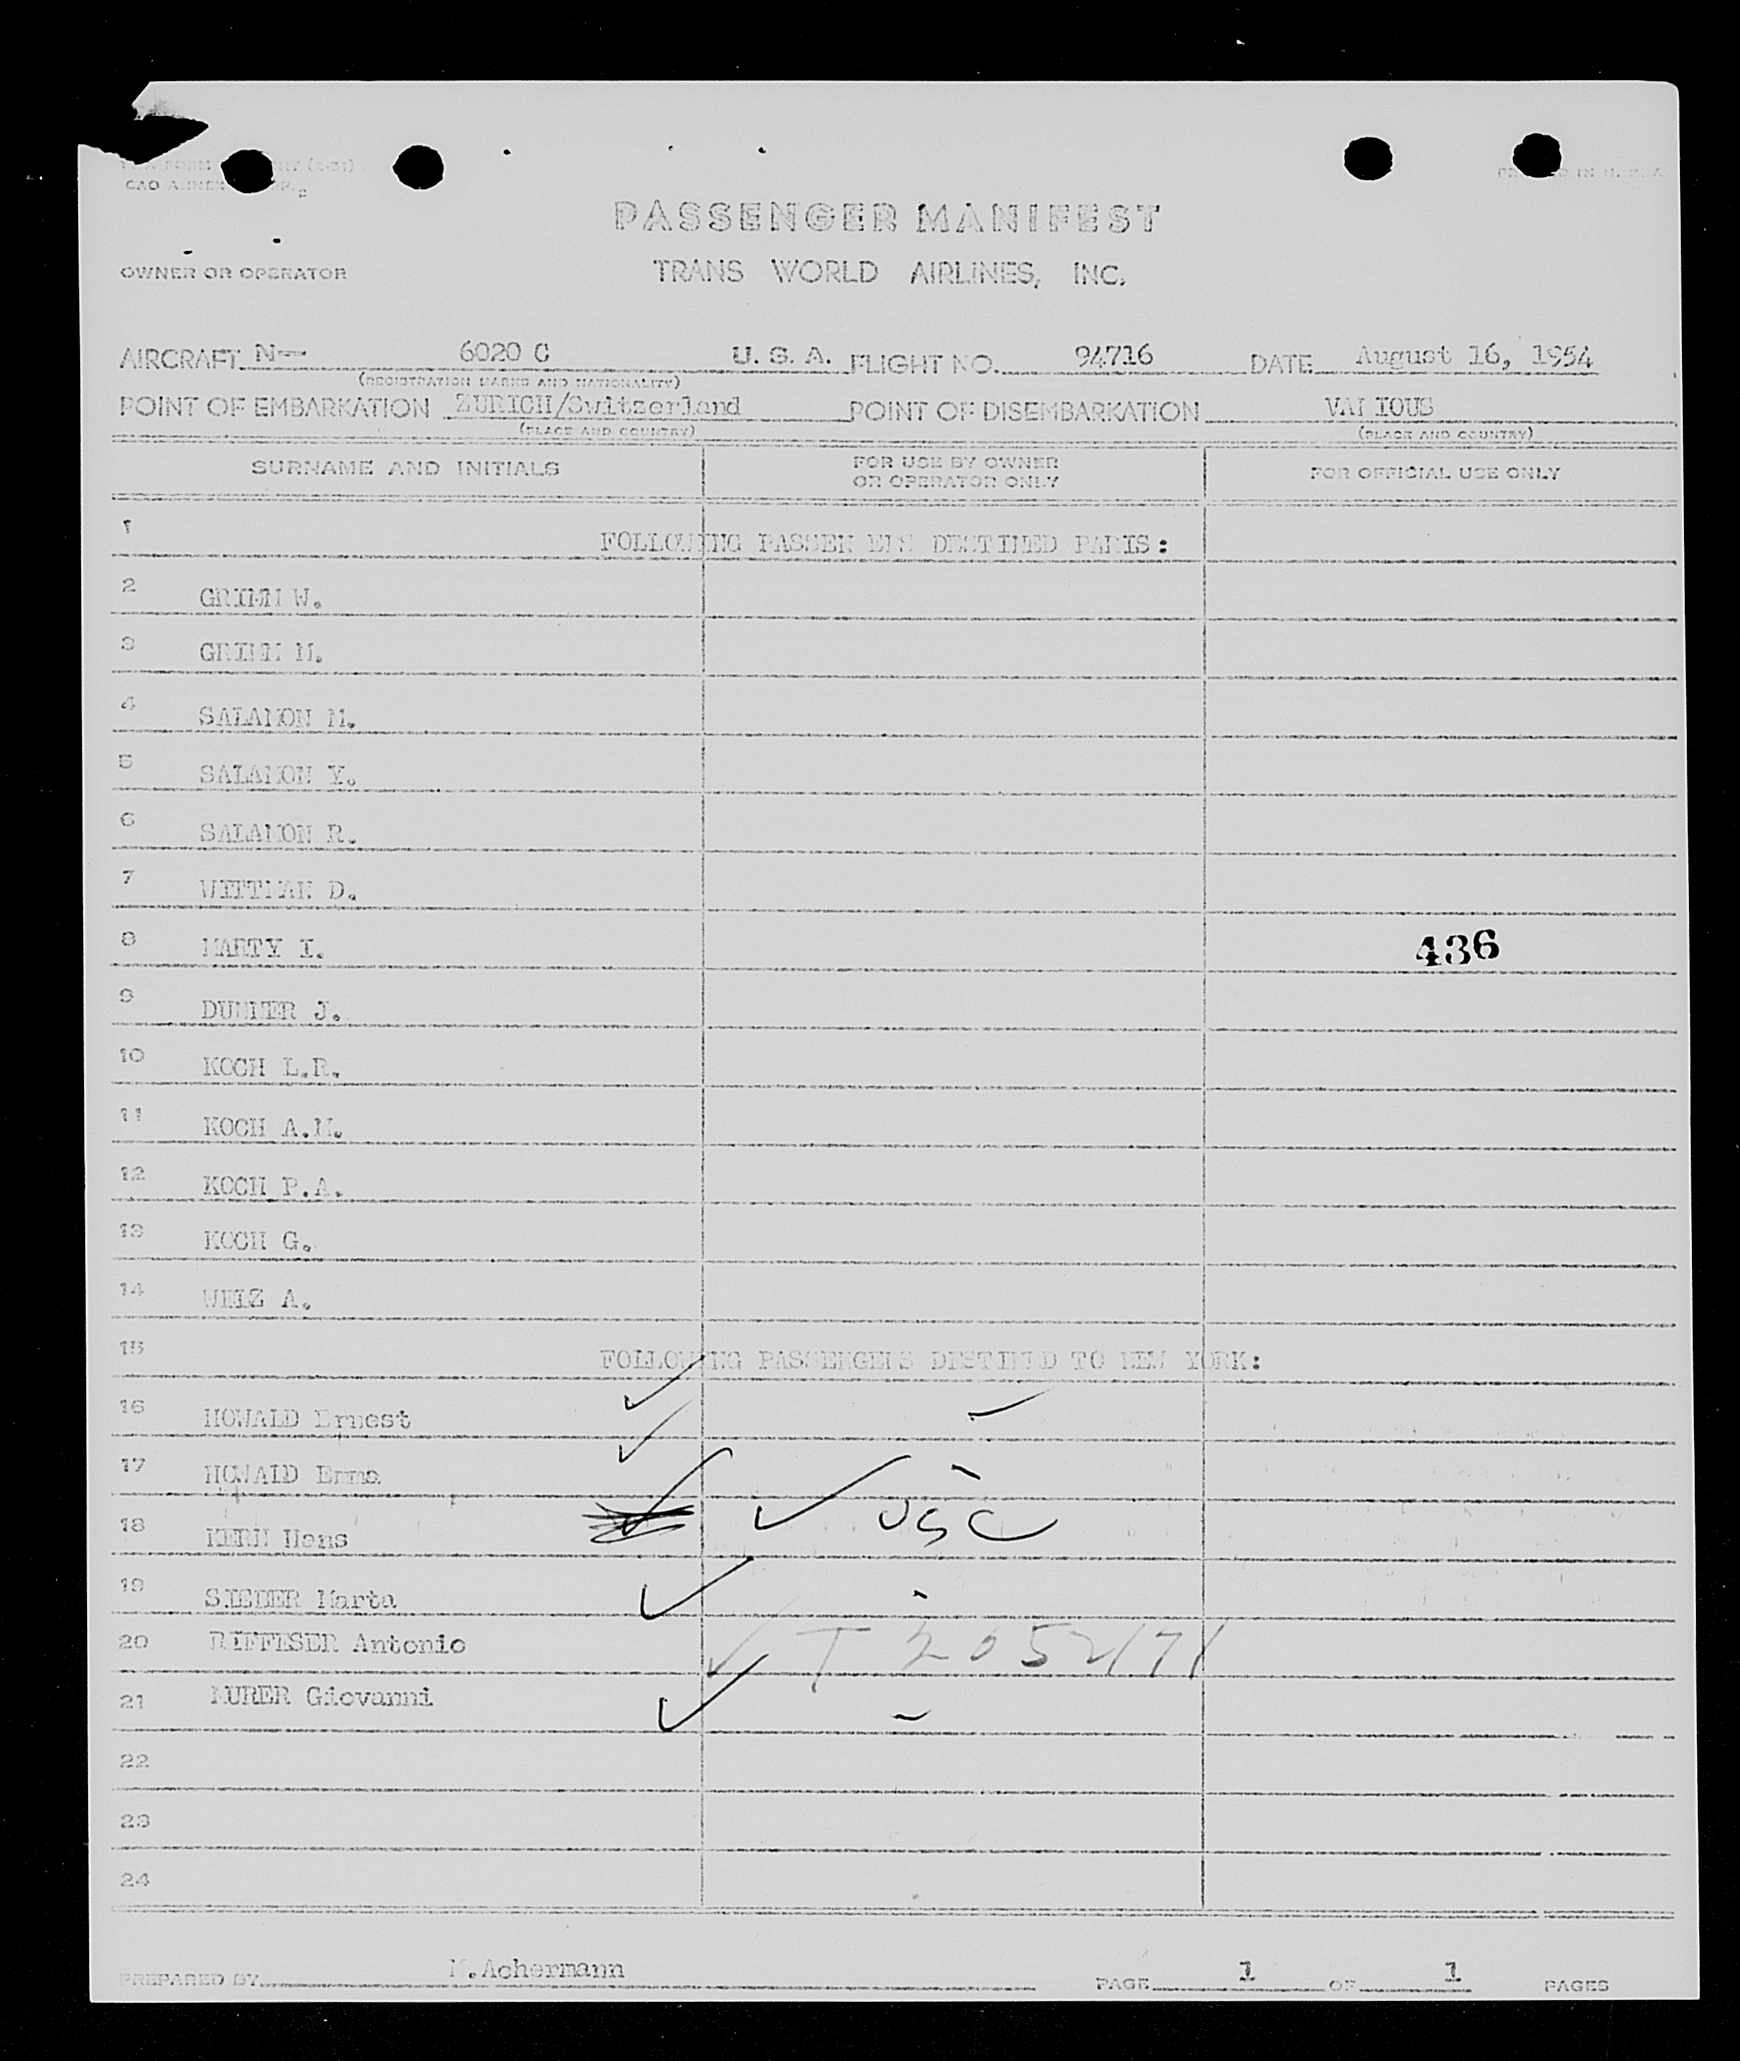 PASSENGER MANIFEST
OWNER OR OPERATOR TRANS WORLD AIRLINES, INC.
AIRCRAFT N— 6020 C U. S. A. FLIGHT NO. 94716 DATE August 16, 1954
(REGISTRATION MARKS AND NATIONALITY)
POINT OF EMBARKATION ZURICH/Switzerland POINT OF DISEMBARKATION VAI IOUS
(PLACE AND COUNTRY) (PLACE AND COUNTRY)
SURNAME AND INITIALS FOR USE BY OWNER OR OPERATOR ONLY FOR OFFICIAL USE ONLY
1 FOLLOWING PASSEN ERS DESTINED PARIS:
2 GRIMM W.
3 GRIMM M.
4 SALAMON M.
5 SALAMON Y.
6 SALAMON R.
7 WITTMAN D.
8 MARTY I. 436
9 J.
10 KOCH L.R.
11 KOCH A.M.
12 KOCH P.A.
13 KOCH G.
14 WEIZ A.
15 FOLLOWING PASSENGERS DESTINED TO NEW YORK:
16 HOWALD Ernest
17 HOWALD Emma
18 KERN Hans USC
19 Marta
20 RIFFESER Antonio T
21 MURER Giovanni
22
23
24
PREPARED BY M.Achermann PAGE 1 OF 1 PAGES